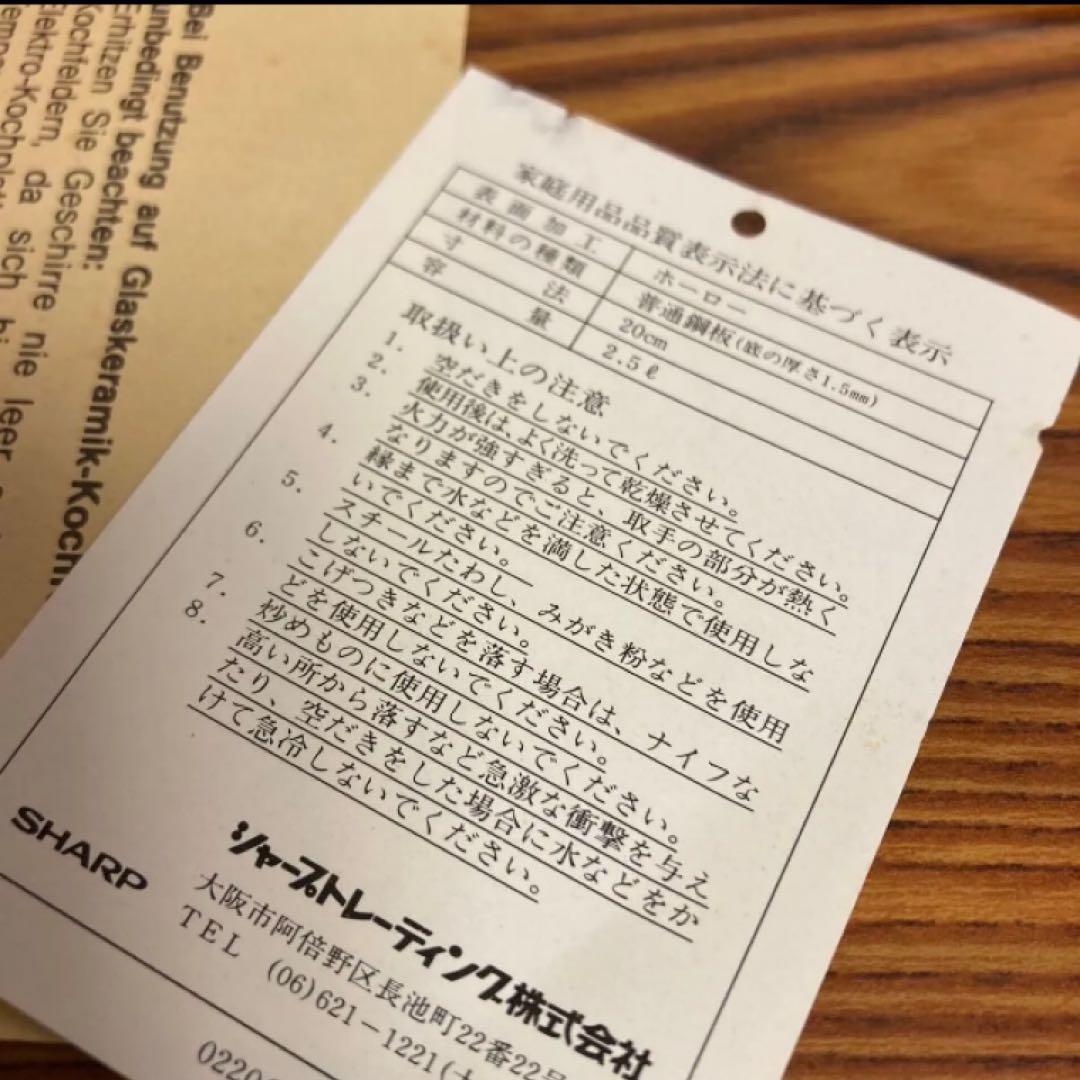 Bei Benutzung auf Glaskeramik-Koch
unbedingt beachten:
Erhitzen Sie Geschirre nie leer
Kochfeldern, da sich
家庭用品品質表示法に基づく表示
表面加工 ホーロー
材料の種類 普通鋼板(底の厚さ1.5mm)
寸法 20cm
容量 2.5ℓ
取扱い上の注意
1. 空だきをしないでください。
2. 使用後は、よく洗って乾燥させてください。
3. 火力が強すぎると、取手の部分が熱く
なりますのでご注意ください。
4. 縁まで水などを満した状態で使用しな
いでください。
5. スチールたわし、みがき粉などを使用
しないでください。
6. こげつきなどを落す場合は、ナイフな
どを使用しないでください。
7. 炒めものに使用しないでください。
8. 高い所から落すなど急激な衝撃を与え
たり、空だきをした場合に水などをか
けて急冷しないでください。
SHARP
シャープトレーディング株式会社
大阪市阿倍野区長池町22番22号
TEL (06)621-1221(
0220